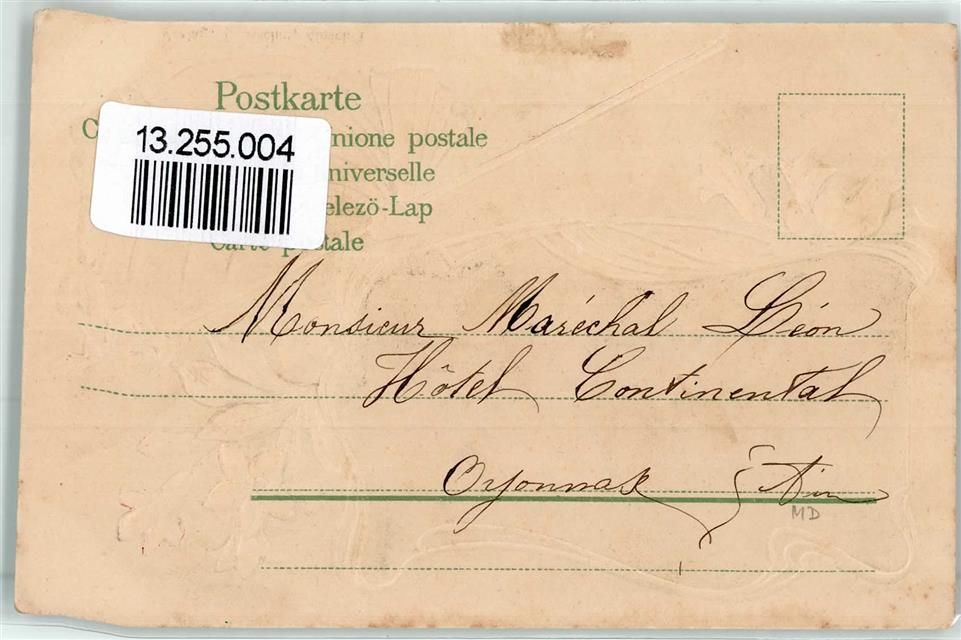 Postkarte
13.255.004
nione postale
niverselle
elezö-Lap
Carte postale
Monsieur Maréchal Léon
Hôtel Continental
Oyonnax Ain
MD